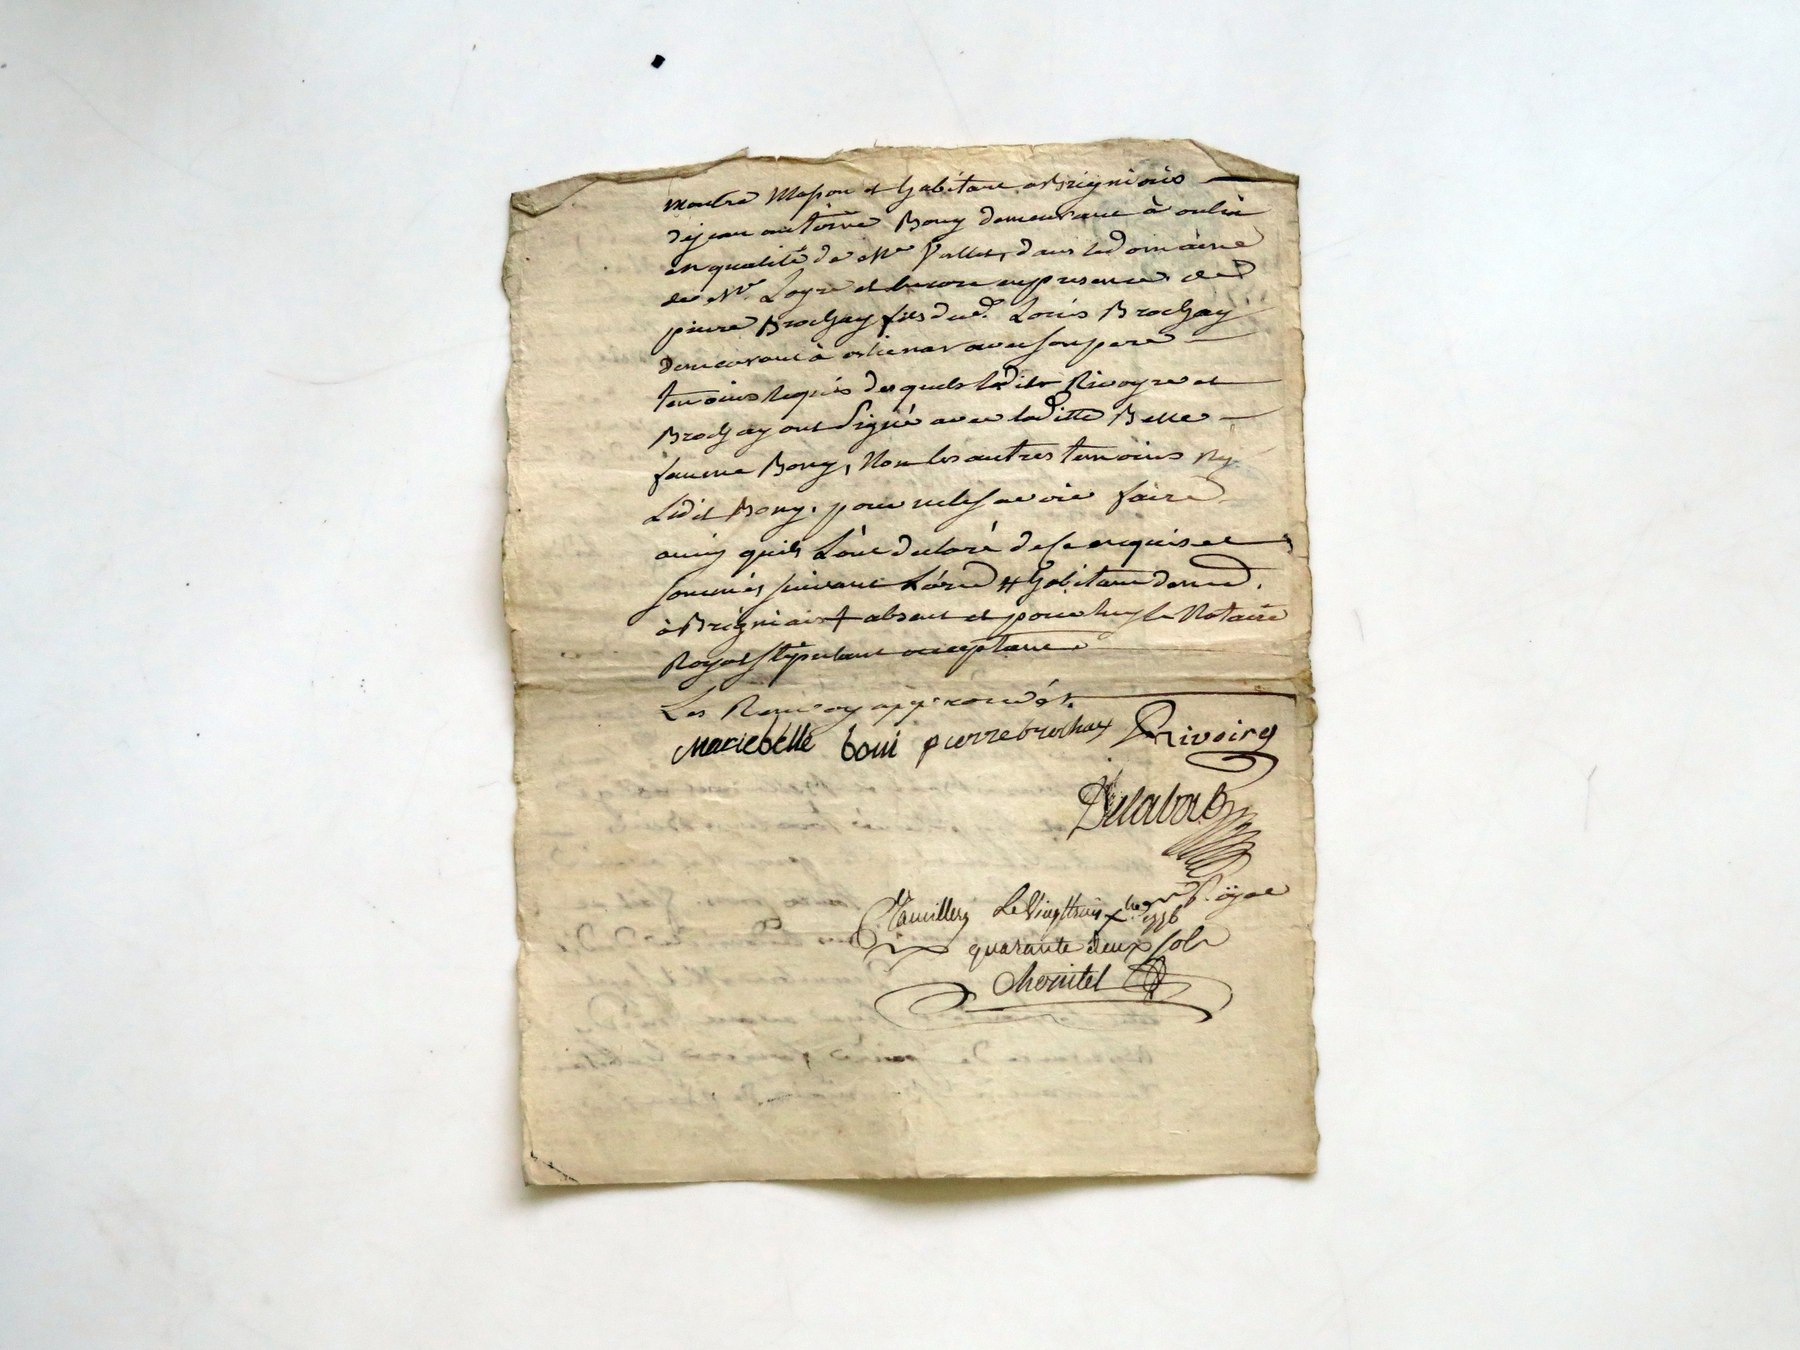 maitre Masson et habitant a Brigniais
de jean antoine Bony demeurant à oulin
en qualité de Me Vallet, dans le domaine
de Mr. Loyre et encore en presence de
pierre Brochay fils dud. Louis Brochay
demeurant à orlienas avec son pere
temoins requis desquels ledit Rivoyre et
Brochay ont Signé avec laditte Belle
femme Bony, Non les autres temoins Ny
Ledit Bony, pour ne le sçavoir faire
ainsy quils L'ont declaré de ce enquis et
sommés suivant L'ord. # habitant dem.
à Brigniais + absent et pour luy le Notaire
Royal stipulant acceptant
Les Renvoy approuvés.
marie belle boni pierre brochay Rivoire
Delabat
à Le Vingt trois xbre 1756
quarante deux sols